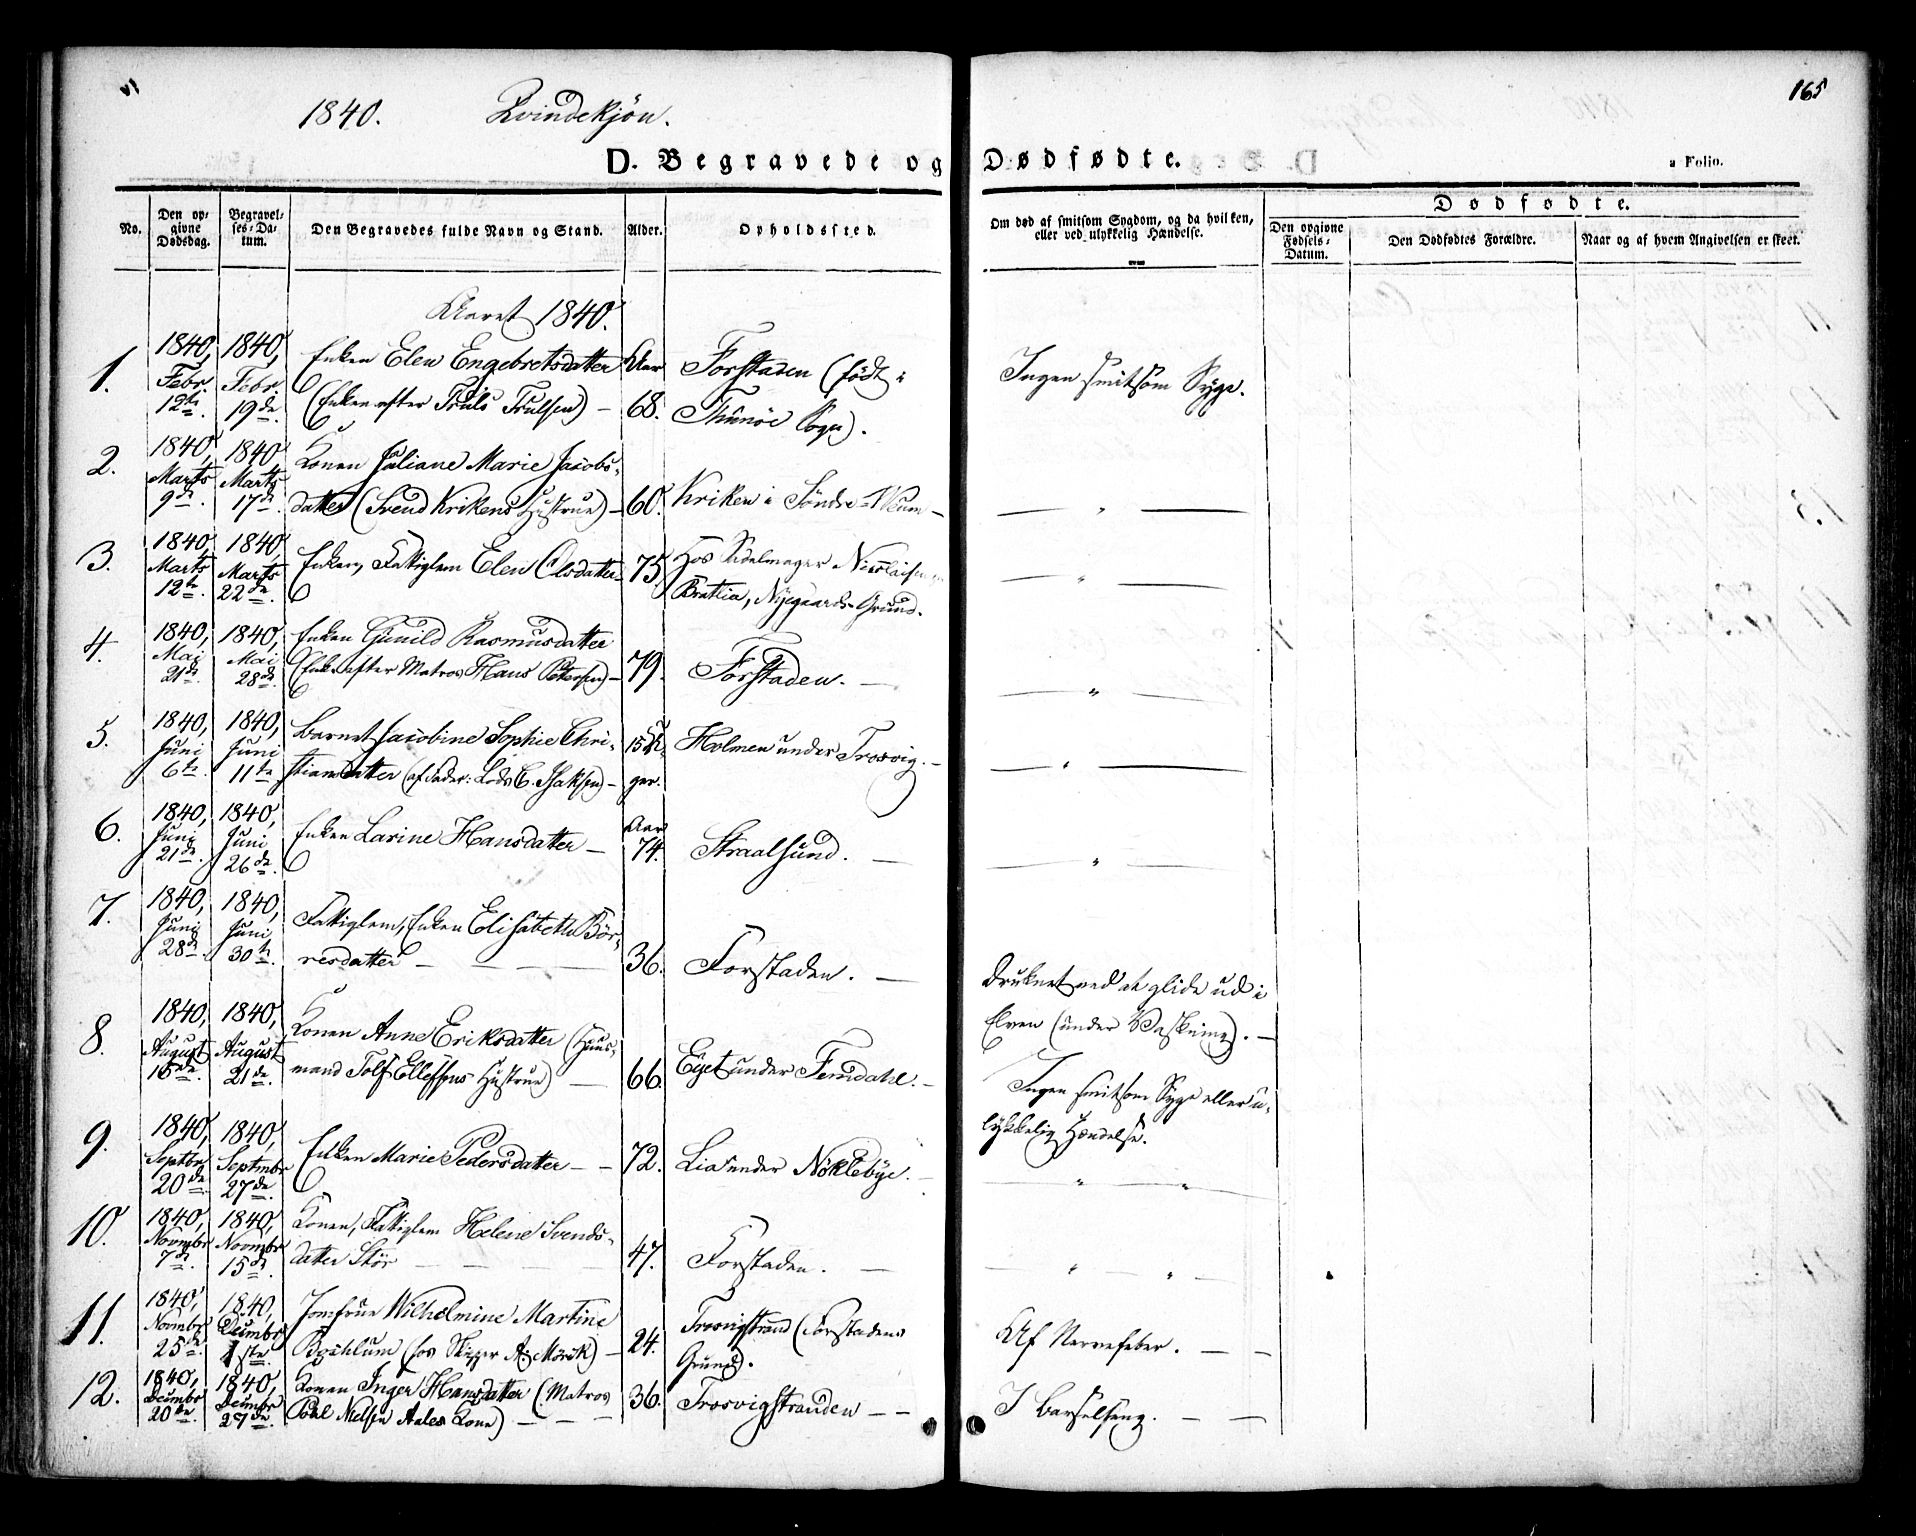 165
1840. Qvindekjøn.
D. Begravede og Dødfødte.
a Folio.
No.
Den opgivne Dødsdag.
Begravelses-Datum.
Den Begravedes fulde Navn og Stand.
Alder.
Opholdssted.
Om død af smitsom Sygdom, og da hvilken, eller ved ulykkelig Hændelse.
Dødfødte.
Den opgivne Fødsels-Datum.
Den Dødfødtes Forældre.
Naar og af hvem Angivelsen er skeet.
Aaret 1840.
1. 1840, Febr. 12te. 1840, Febr. 19de Enken Elen Engebretsdatter Aar Forstaden (født i Ingen smitsom Syge.
(Enken efter Truls Trulsen) — 68. Thunöe Sogn).
2. 1840, Marts 9de. 1840 Marts 17de. Konen Juliane Marie Jacobs-
datter (Svend Krikens Hustrue) — 60. Kriken i Söndre — — " —
3. 1840, Marts 12te. 1840, Marts 22de. Enken, Fattiglem Elen Olsdatter 75. Hos Sadelmager Nicolaisen — " —
Bratlia, Nygaards-Grund.
4. 1840, Mai 21de. 1840, Mai 28de. Enken Gunild Rasmusdatter
(Enke efter Matros Hans Petersen) — 79. Forstaden. — — " —
5. 1840, Juni 6te. 1840, Juni 11te Barnet Jacobine Sophie Chri- 15 U- Holmen under Trosvig. — — " —
stiansdatter (af Fader: Lods C. Isaksen) — ger.
6. 1840, Juni 21de. 1840, Juni 26de. Enken Larine Hansdatter — Aar 74. Straalsund. — — " —
7. 1840, Juni 28de. 1840, Juni 30te. Fattiglem, Enken Elisabeth Bör-
resdatter — — — 36. Forstaden. — Druknet ved at glide ud i
Elven (under Vaskning). —
8. 1840, August 15de. 1840, August 21de. Konen Anne Eriksdatter (Huus-
mand Tolf Ellefsens Hustrue) — 66. Eget under Femdahl. — Ingen smitsom Syge eller u-
lykkelig Hændelse.
9. 1840, Septbr 20de. 1840, Septmbr 27de. Enken Marie Pedersdatter — — 72. Lia under Nöklebye. — " "
10. 1840, Novmbr 7de. 1840, Novmbr 15de. Konen, Fattiglem Helene Svends-
datter Stör — — — 47. Forstaden. — — " — " —
11. 1840, Novmbr 25de. 1840, Decmbr 1ste. Jomfrue Wilhelmine Martine Trosvigstrand (Forstadens
(hos Skipper A: Mörck) — 24. Grund). Af Nervefeber. — —
12. 1840, Decmbr 20de. 1840, Decmbr 27de. Konen Inger Hansdatter (Matros 36. Trosvigstranden — — I Barselseng. — —
Poul Nielsen Aales Kone) — — —